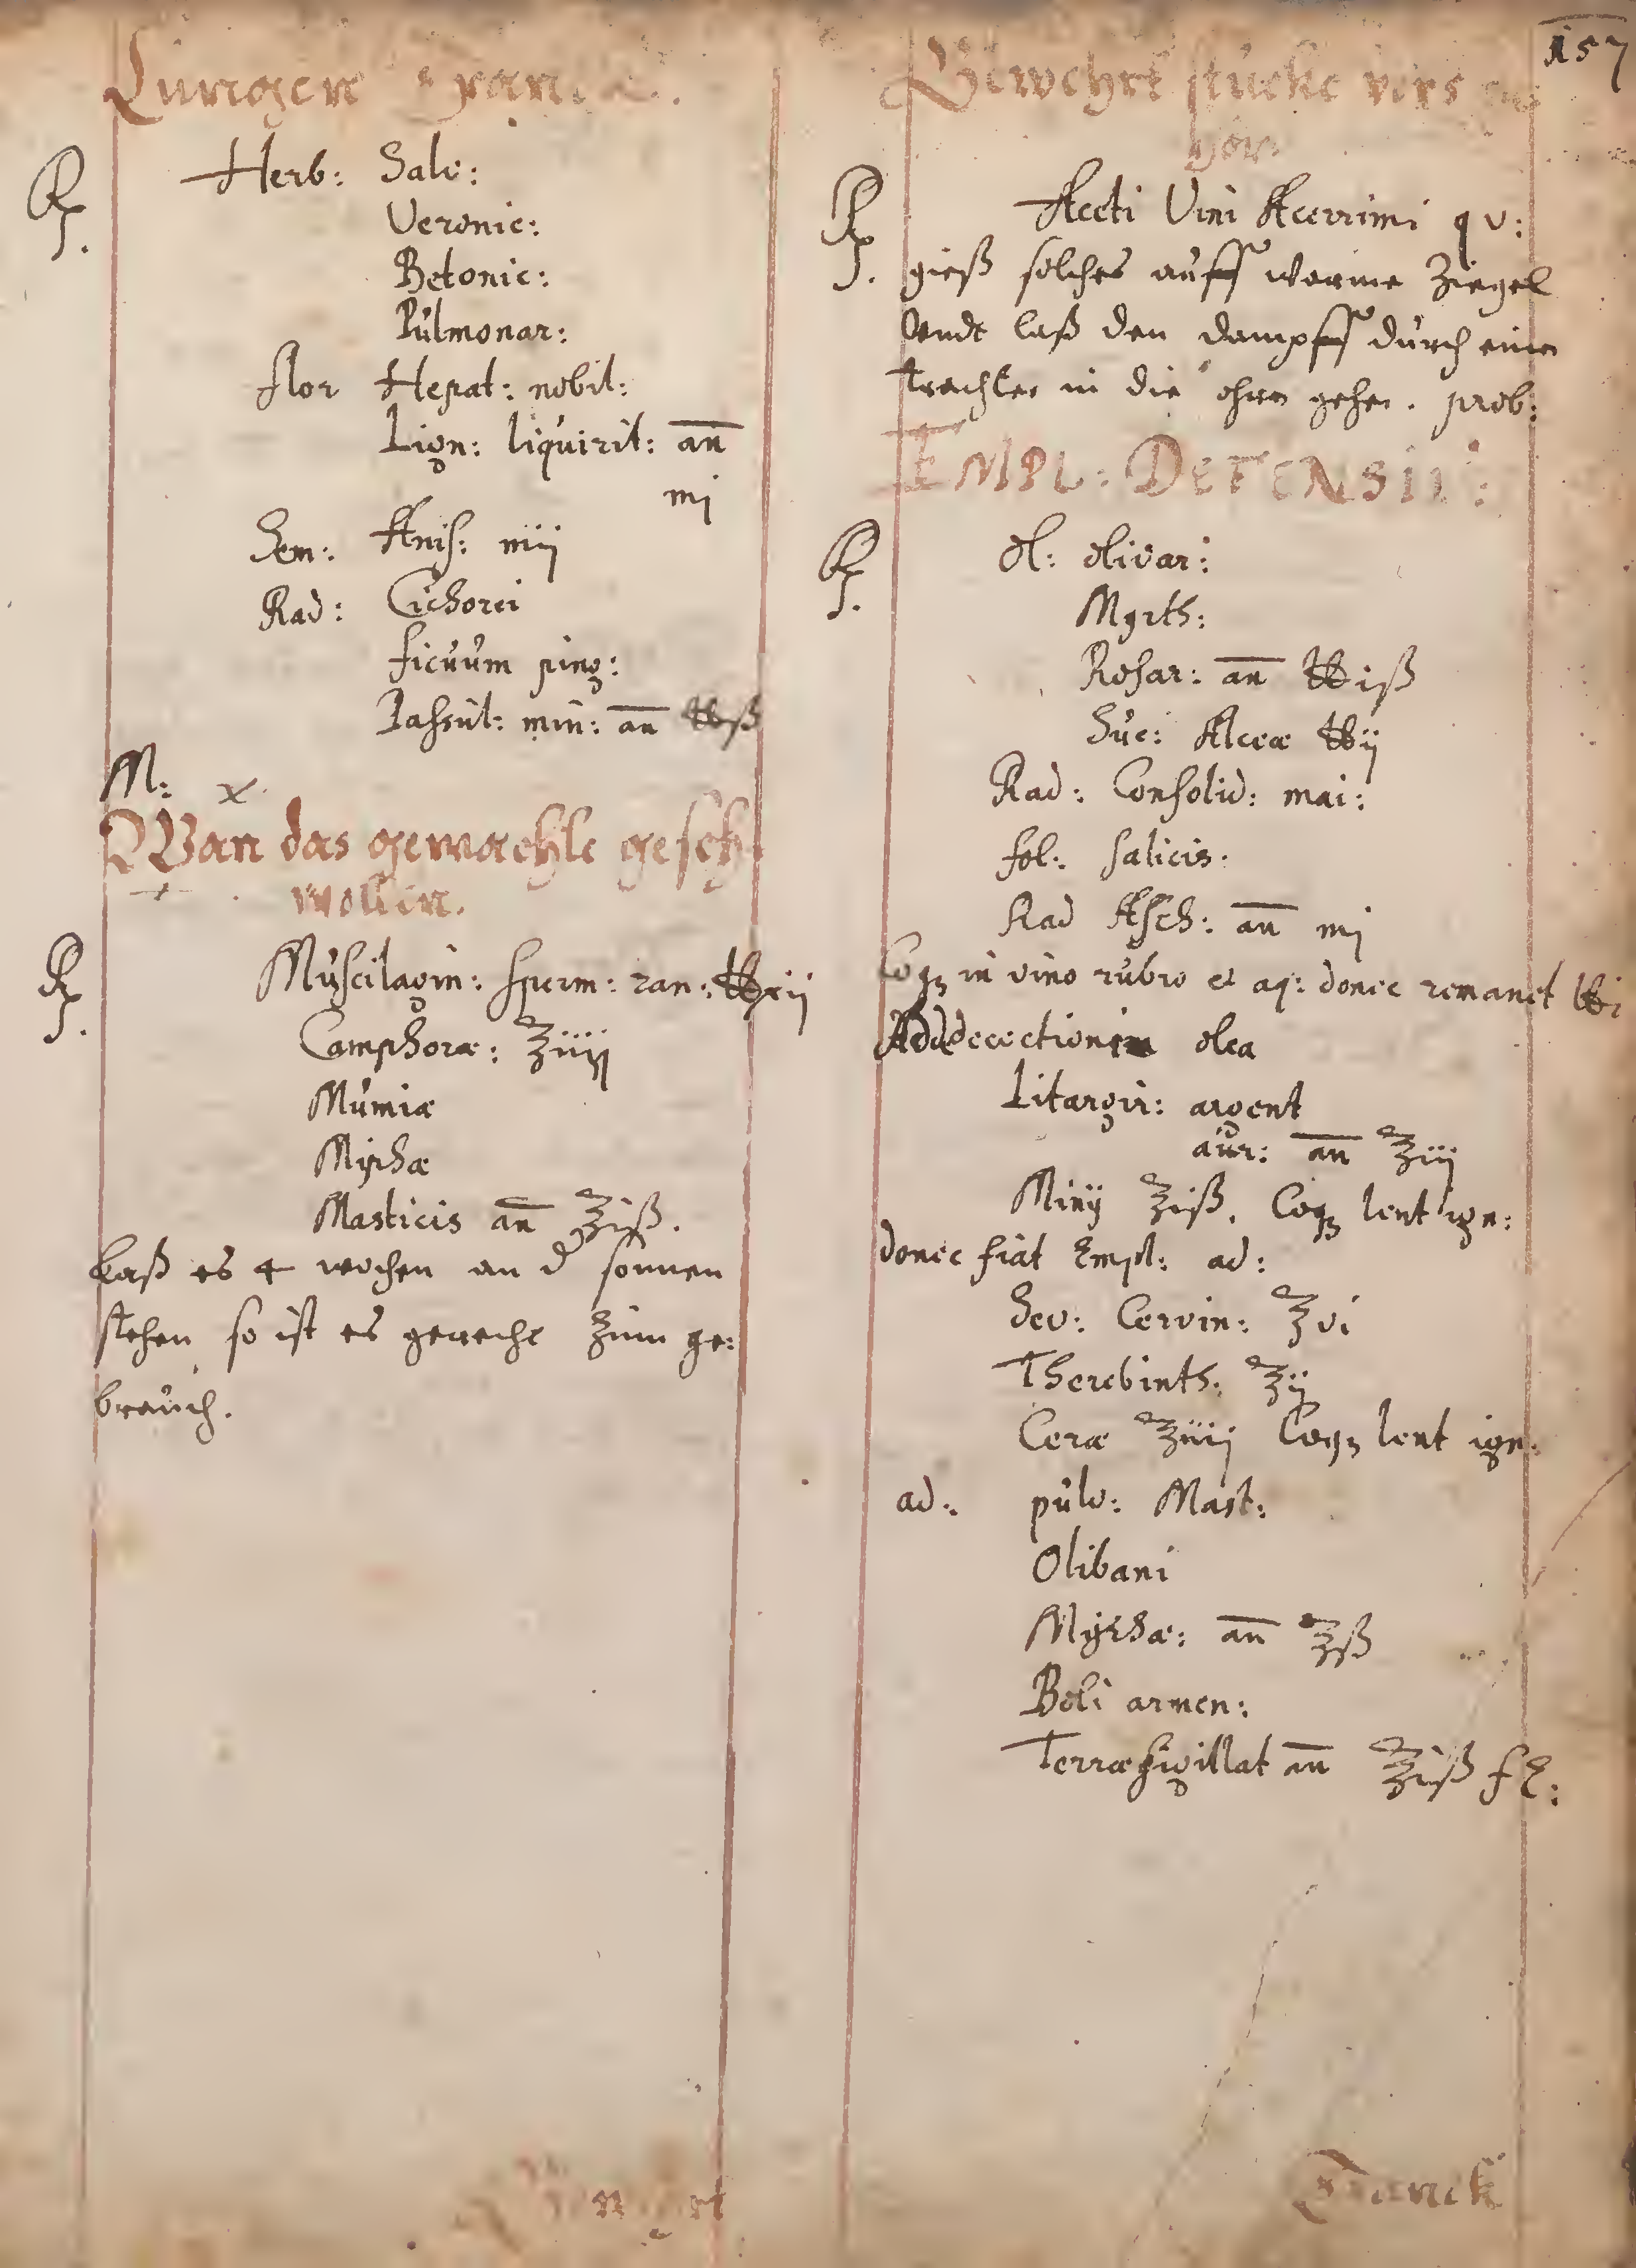 157
Lungen
℞.
Herb: Salv:
Veronic:
Betonic:
Pulmonar:
flor Hepat: nobil:
Lign: liquirit: añ
mj
Sem: Anis: mij
Rad: Cichorei
ficuum ping:
Passul: min: añ ℔ß
M:
Wan das gemaechle gesch
wollen.
℞.
Muscilagin: sperm: ran: ℔xij
Camphoræ: ℥iiij
Mumiæ
Myrhæ
Masticis añ ℥iß.
Laß es 4 wochen an d sonnen
stehen so ist es gerecht zum ge:
brauch.
Bewehrt stucke vors
hör.
℞.
Aceti Vini Acerrimi qv:
gieß solches auff warme Ziegel
vndt laß den dampff durch einen
trachter in die ohren gehen. prob:
EMPL: DEFENSIV:
℞.
Ol: Olivar:
Myrth:
Rosar: añ ℔iß
Suc: Alceæ ℔ij
Rad: Consolid: mai:
fol: Salicis:
Rad Alth: añ mj
Coqʒ in vino rubro et aq: donec remanet ℔i
Add decoctionem olea
Litargir: argent
aur: añ ℥iij
Minij ℥iß. Coqʒ lent ign:
donec fiat Empl: ad:
Sev: Cervin: ℥vi
Therebinth: ℥ij
Ceræ ℥iiij Coqʒ lent ign:
ad: pulv: Mast:
Olibani
Myrhæ: añ ℥ß
Boli armen:
Terræ sigillat añ ℥iß f E:
Tranck